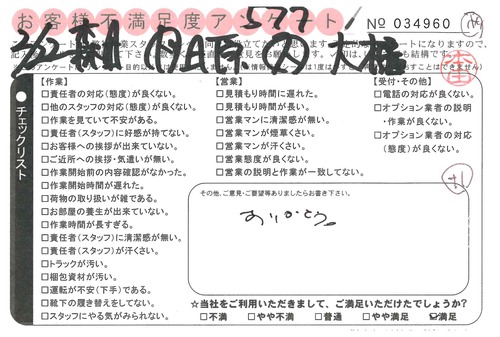 お客様不満足度アンケート
№ 034960
チェックリスト
【作業】
□責任者の対応(態度)が良くない。
□他のスタッフの対応(態度)が良くない。
□作業を見ていて不安がある。
□責任者(スタッフ)に好感が持てない。
□お客様への挨拶が出来ていない。
□ご近所への挨拶・気遣いが無い。
□作業開始前の内容確認がなかった。
□作業開始時間が遅れた。
□荷物の取り扱いが雑である。
□お部屋の養生が出来ていない。
□作業時間が長すぎる。
□責任者(スタッフ)に清潔感が無い。
□責任者(スタッフ)が汗くさい。
□トラックが汚い。
□梱包資材が汚い。
□運転が不安(下手)である。
□靴下の履き替えをしてない。
□スタッフにやる気がみられない。
【営業】
□見積もり時間に遅れた。
□見積もり時間が長い。
□営業マンに清潔感が無い。
□営業マンが煙草くさい。
□営業マンが汗くさい。
□営業態度が良くない。
□営業の説明と作業が一致してない。
【受付・その他】
□電話の対応が良くない。
□オプション業者の説明
・作業が良くない。
□オプション業者の対応
(態度)が良くない。
その他、ご意見・ご要望等ありましたらお書き下さい。
ありがとう。
☆当社をご利用いただきまして、ご満足いただけたでしょうか?
□不満 □やや不満 □普通 □やや満足 ☑満足